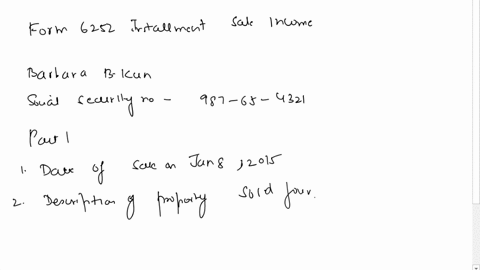 Form 6252 Intallment Sale Income
Barbara B Kun
Social security no - 987-65-4321
Part 1
1. Date of sale on Jan 8, 2015
2. Description of property sold four.